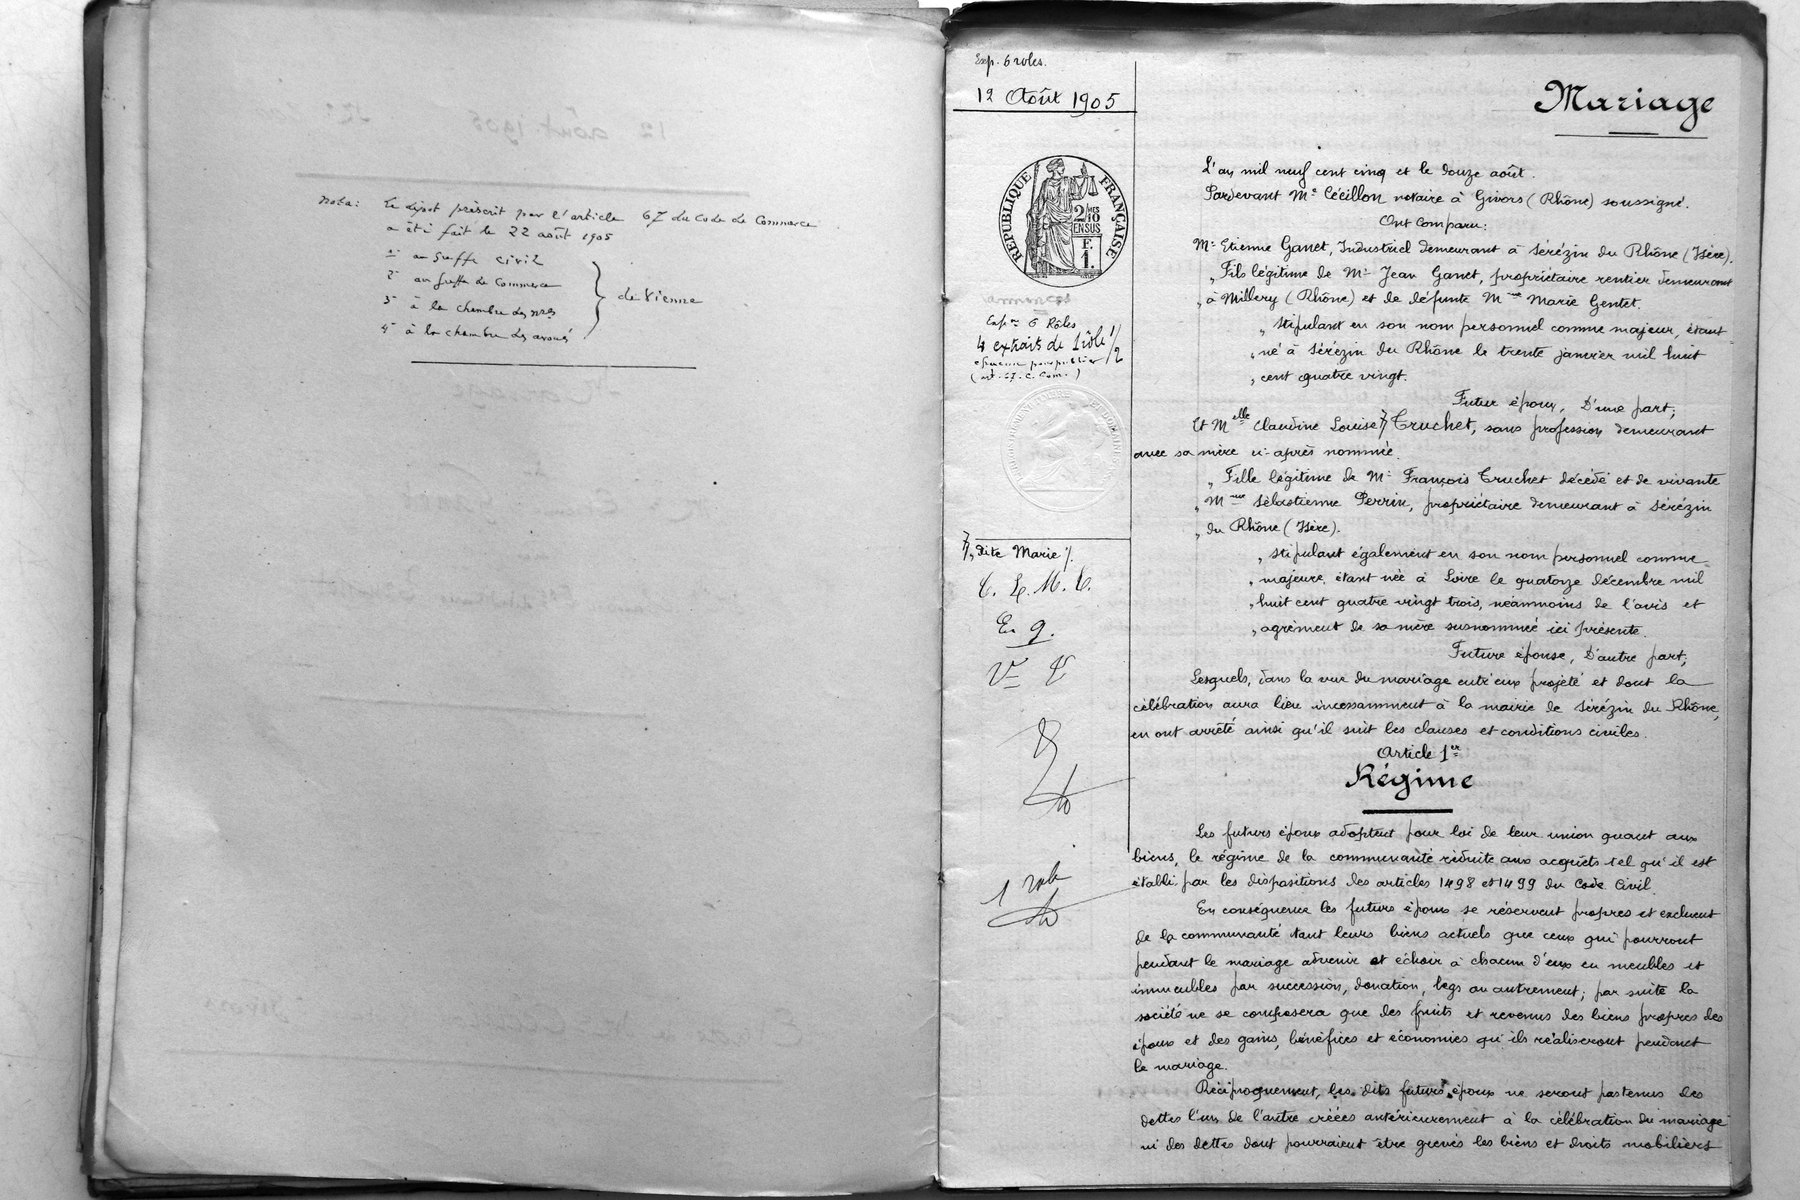 Nota: Le dépôt prescrit par l'article 67 du Code de Commerce
a été fait le 22 août 1905
1° au Greffe civil
2° au Greffe de Commerce
3° à la chambre des nres
4° à la chambre des avoués
de Vienne
Exp. 6 roles.
12 Août 1905
RÉPUBLIQUE FRANÇAISE
2/10
EN SUS
F.
1.
4 extraits de 1 rôle 1/2
(art. 67. C. Com.)
, dite Marie /.
C. L. M. C.
E. g.
1 role
Mariage
L'an mil neuf cent cinq et le douze août.
Pardevant Me Cécillon notaire à Givors (Rhône) soussigné.
Ont Comparu:
Mr Etienne Ganet, Industriel demeurant à Sérézin du Rhône (Isère).
„ Fils légitime de Mr Jean Ganet, propriétaire rentier demeurant
„ à Millery (Rhône) et de défunte Mme Marie Gentet.
„ stipulant en son nom personnel comme majeur, étant
„ né à Sérézin du Rhône le trente janvier mil huit
„ cent quatre vingt.
Futur époux, D'une part;
Et Melle Claudine Louise Truchet, sans profession demeurant
avec sa mère ci-après nommée.
„ Fille légitime de Mr François Truchet décédé et de vivante
„ Mme Sébastienne Perrin, propriétaire demeurant à Sérézin
„ du Rhône (Isère).
„ stipulant également en son nom personnel comme
„ majeure, étant née à Loire le quatorze décembre mil
„ huit cent quatre vingt trois, néanmoins de l'avis et
„ agrément de sa mère susnommée ici présente.
Future épouse, D'autre part;
Lesquels, dans la vue du mariage entr'eux projeté et dont la
célébration aura lieu incessamment à la mairie de Sérézin du Rhône,
en ont arrêté ainsi qu'il suit les clauses et conditions civiles.
Article 1er
Régime
Les futurs époux adoptent pour loi de leur union quant aux
biens, le régime de la communauté réduite aux acquêts tel qu'il est
établi par les dispositions des articles 1498 et 1499 du Code Civil.
En conséquence les futurs époux se réservent propres et excluent
de la communauté tant leurs biens actuels que ceux qui pourront
pendant le mariage advenir et échoir à chacun d'eux en meubles et
immeubles par succession, donation, legs ou autrement; par suite la
société ne se composera que des fruits et revenus des biens propres des
époux et des gains, bénéfices et économies qu'ils réaliseront pendant
le mariage.
Réciproquement, les dits futurs époux ne seront pas tenus des
dettes l'un de l'autre créées antérieurement à la célébration du mariage
ni des dettes dont pourraient être grevés les biens et droits mobiliers